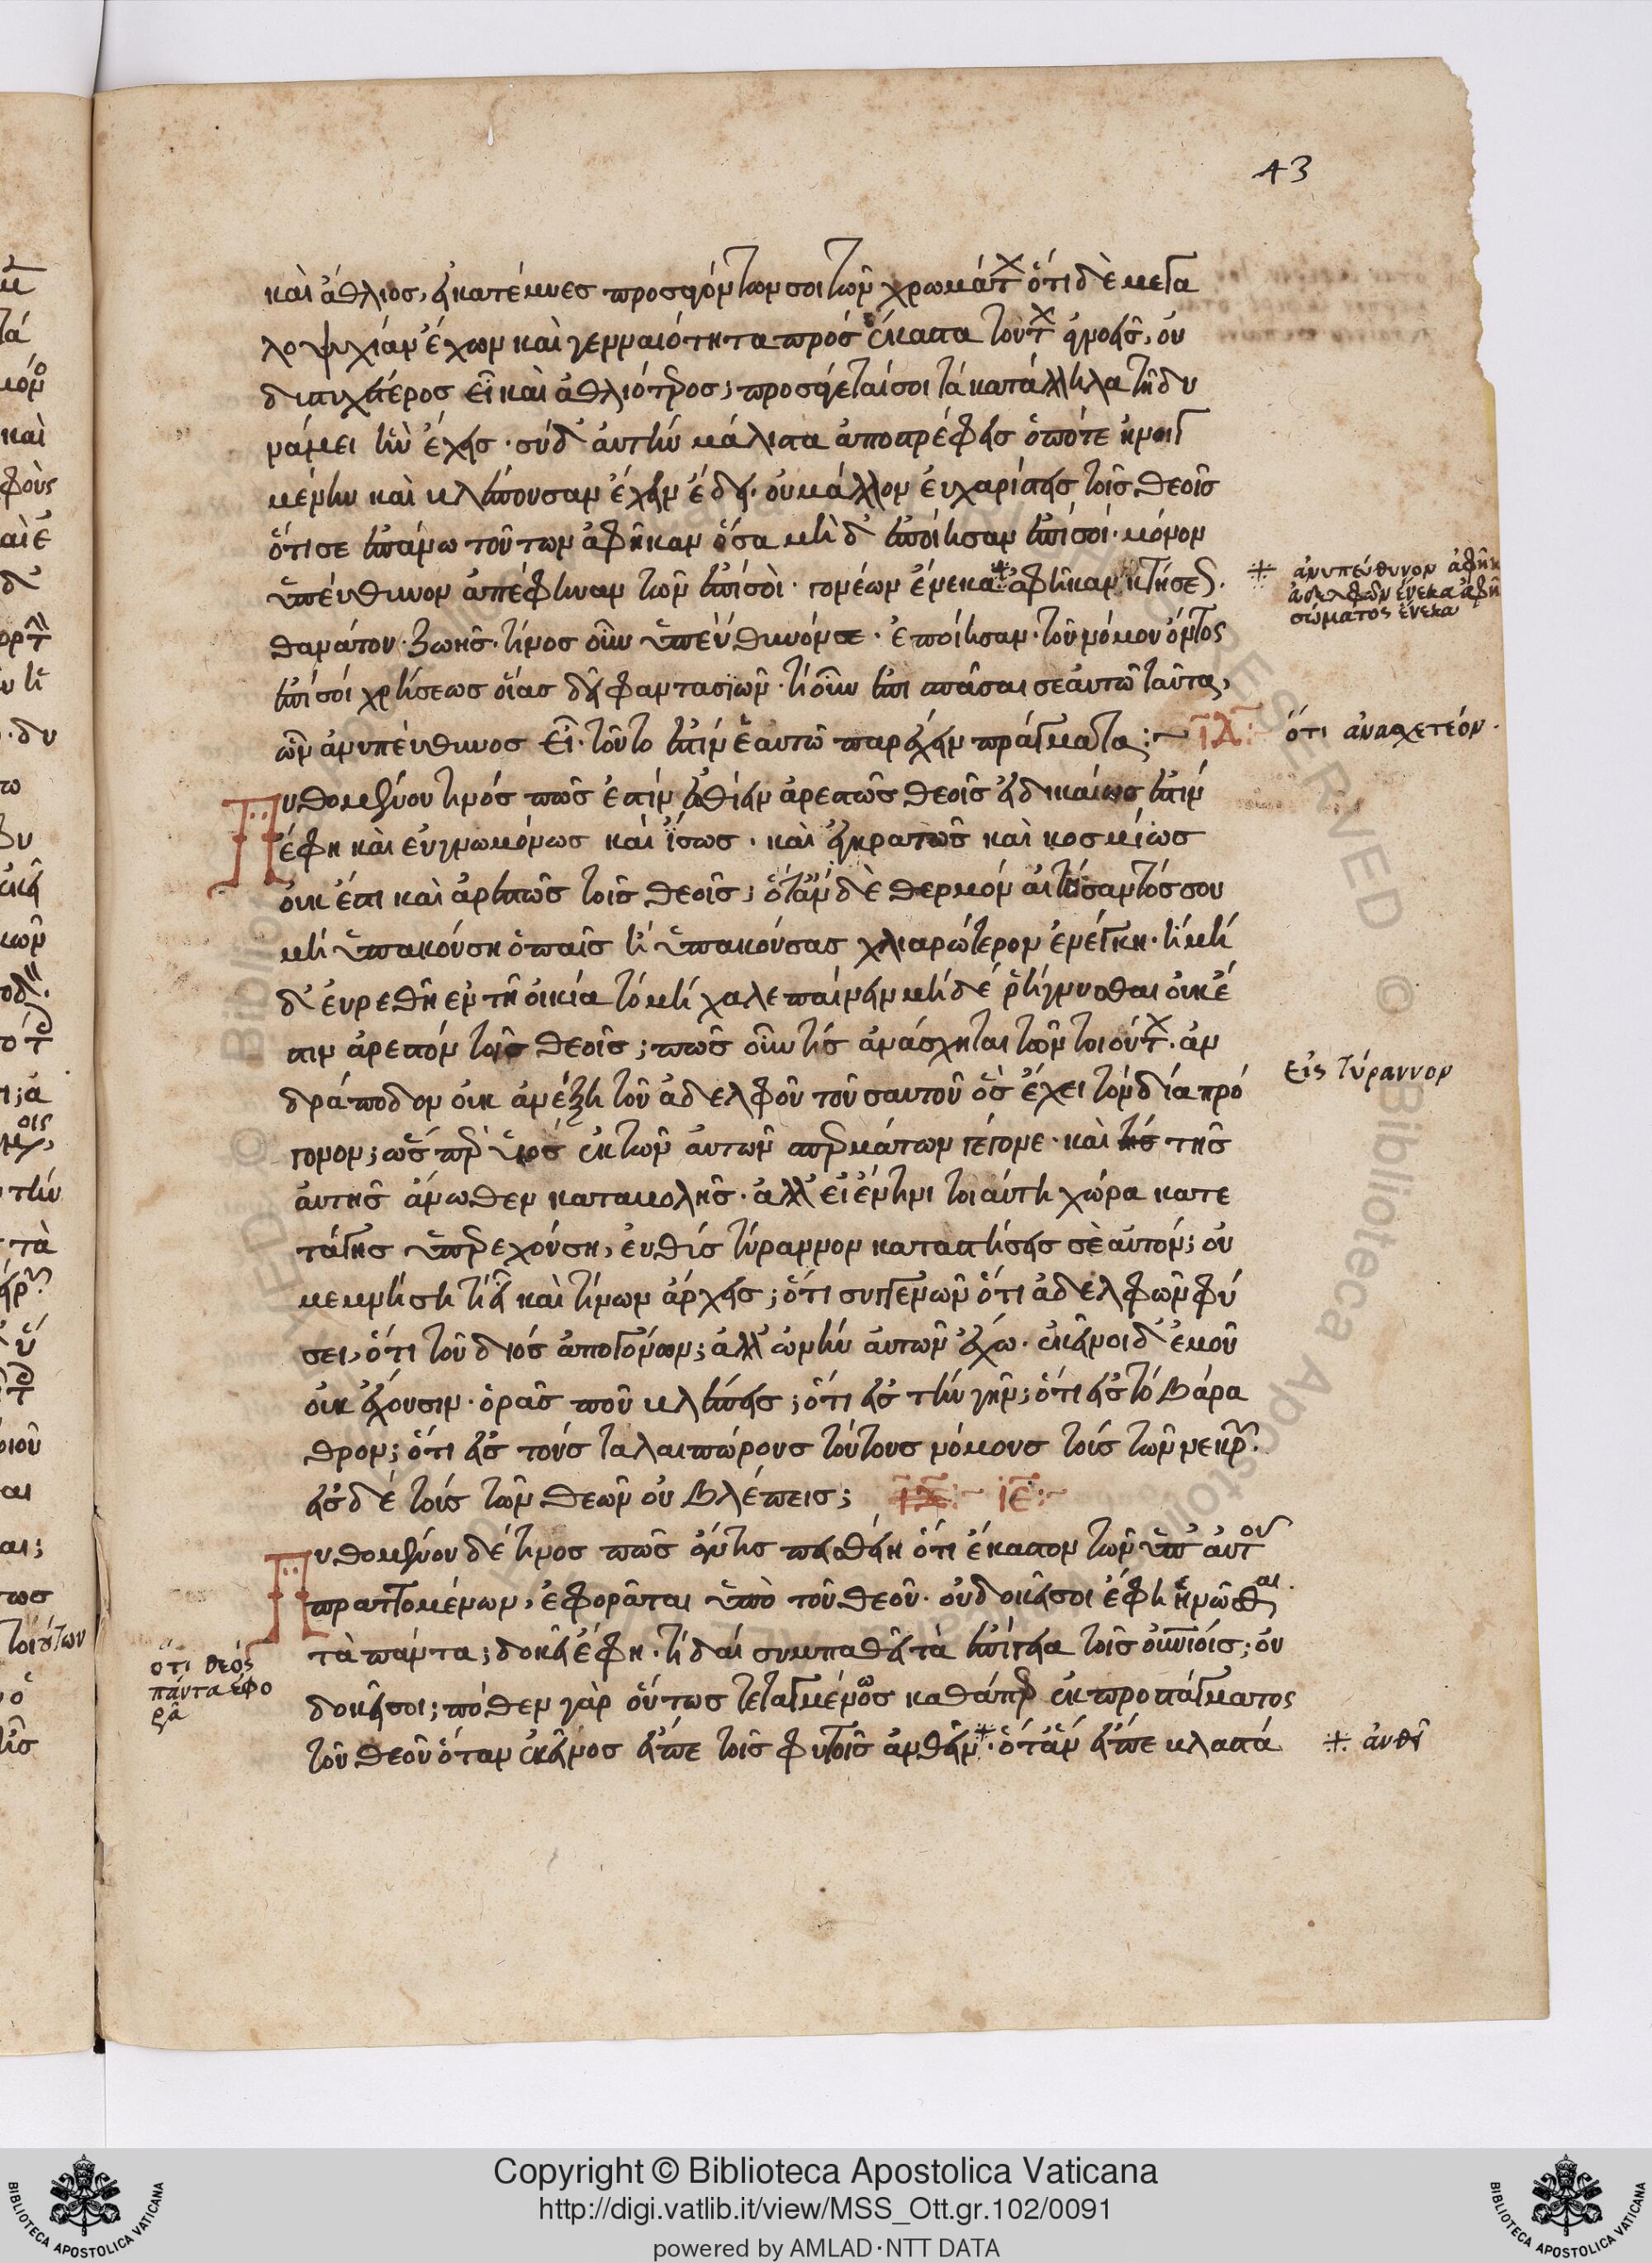 43
καὶ ἄθλιος, ἐγκατέμενες προσφόντων σοι τῶν χρωμάτ ὅτι δὲ μεγα
λοψυχίαν ἔχων καὶ γενναιότητα πρὸς ἕκαστα τούτ
διστυχέστερος εἶ καὶ ἀθλιότερος; προσφέρεταί σοι τὰ κατάλληλα τῇ δυ
νάμει ἣν ἔχεις· σὺ δ' αὐτὴν μάλιστα ἀποστρέφεις ὁπότε
μένην καὶ βλέπουσαν ἔχειν ἔδει· οὐ μᾶλλον εὐχαριστεῖς τοῖς θεοῖς
ὅτι σε ἐπάνω τούτων ἀφῆκαν ὅσα μὴ δ' ἐποίησαν ἐπὶ σοί· μόνον
ὑπεύθυνον ἀπέφηναν τῶν ἐπὶ σοὶ· γονέων ἕνεκα ἀφῆκαν κτήσε
θανάτου· ζωῆς· τίνος οὖν ὑπεύθυνόν σε· ἐποίησαν· τοῦ μόνου ὄντος
ἐπὶ σοὶ χρήσεως οἵας δεῖ φαντασιῶν· τί οὖν ἐπι σπᾶσαι σεαυτῷ ταῦτα,
ὧν ἀνυπεύθυνος εἶ· τοῦτο ἐστὶν ἑαυτῷ παρέχειν πράγματα:~ ΙΔ:
Πυθομένου τινὸς πῶς ἔστιν ἐσθίειν ἀρεστῶς θεοῖς εἰ δικαίως ἐστίν
ἔφη καὶ εὐγνωμόνως καὶ ἴσως· καὶ ἐγκρατῶς καὶ κοσμίως
οὐκ ἔστι καὶ ἀρεστῶς τοῖς θεοῖς; ὅταν δὲ θερμὸν αἰτήσαντός σου
μὴ ὑπακούσῃ ὁ παῖς ἢ ὑπακούσας χλιαρώτερον ἐνέγκῃ· ἢ μὴ
δ' εὑρεθῇ ἐν τῇ οἰκίᾳ τὸ μὴ χαλεπαίνειν μὴ δὲ ῥήγνυσθαι οὐκ ἔ
στιν ἀρεστὸν τοῖς θεοῖς; πῶς οὖν τὶς ἀνάσχηται τῶν τοιούτ· ἀν
δράποδον οὐκ ἀνέξῃ τοῦ ἀδελφοῦ τοῦ σαυτοῦ ὃς ἔχει τὸν δία πρό
γονον; ὥσπερ υἱὸς ἐκ τῶν αὐτῶν σπερμάτων γέγονε· καὶ τῆς
αὐτῆς ἄνωθεν καταβολῆς· ἀλλ' εἰ ἔν τινι τοιαύτῃ χώρᾳ κατε
τάγης ὑπερεχούσῃ, εὐθὺς τύραννον καταστήσεις σὲ αὐτόν; οὐ
μεμνήσῃ τί εἶ καὶ τίνων ἄρχεις; ὅτι συγγενῶν ὅτι ἀδελφῶν φύ
σει, ὅτι τοῦ διὸς ἀπογόνων; ἀλλ' ὠνὴν αὐτῶν ἔχω· ἐκεῖνοι δ' ἐμοῦ
οὐκ ἔχουσιν· ὁρᾷς ποῦ βλέπεις; ὅτι εἰς τὴν γῆν; ὅτι εἰς τὸ βάρα
θρον; ὅτι εἰς τοὺς ταλαιπώρους τούτους νόμους τοὺς τῶν νεκρ
εἰς δὲ τοὺς τῶν θεῶν οὐ βλέπεις; ΙΕ:~
Πυθομένου δέ τινος πῶς ἄν τις πεισθείη ὅτι ἕκαστον τῶν ὑπ' αὐτοῦ
πραττομένων, ἐφορᾶται ὑπὸ τοῦ θεοῦ· οὐ δοκεῖ σοι ἔφη ἡνῶσθαι
τὰ πάντα; δοκεῖ ἔφη· τί δαί συμπαθεῖν τὰ ἐπίγεια τοῖς οὐνίοις; οὐ
δοκεῖ σοι; πόθεν γὰρ οὕτως τεταγμένως καθάπερ ἐκ προστάγματος
τοῦ θεοῦ ὅταν ἐκεῖνος εἴπῃ τοῖς φυτοῖς ἀνθεῖν· ὅταν εἴπῃ βλαστά
ἀνυπεύθυνον ἀφῆκ
ἀδελφῶν ἕνεκα ἀφῆ
σώματος ἕνεκα
ὅτι ἀνασχετέον·
εἰς τύραννον
ὅτι θεός
πάντα ἐφο
ρᾷ
ἀνθεῖ
Copyright © Biblioteca Apostolica Vaticana
http://digi.vatlib.it/view/MSS_Ott.gr.102/0091
powered by AMLAD·NTT DATA
BIBLIOTECA APOSTOLICA VATICANA
BIBLIOTECA APOSTOLICA VATICANA